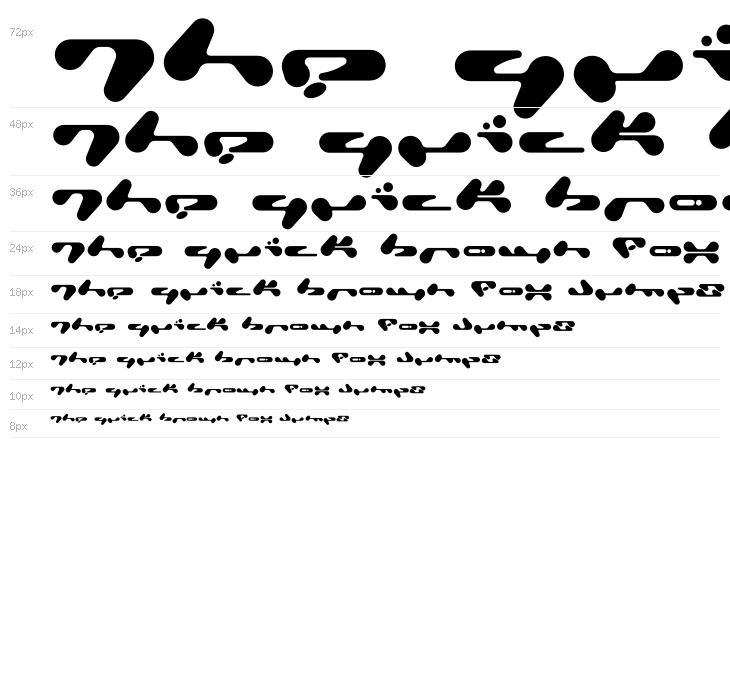 72px The qui
48px The quick
36px The quick bro
24px The quick brown fox
18px The quick brown fox jumps
14px The quick brown fox jumps
12px The quick brown fox jumps
10px The quick brown fox jumps
8px The quick brown fox jumps